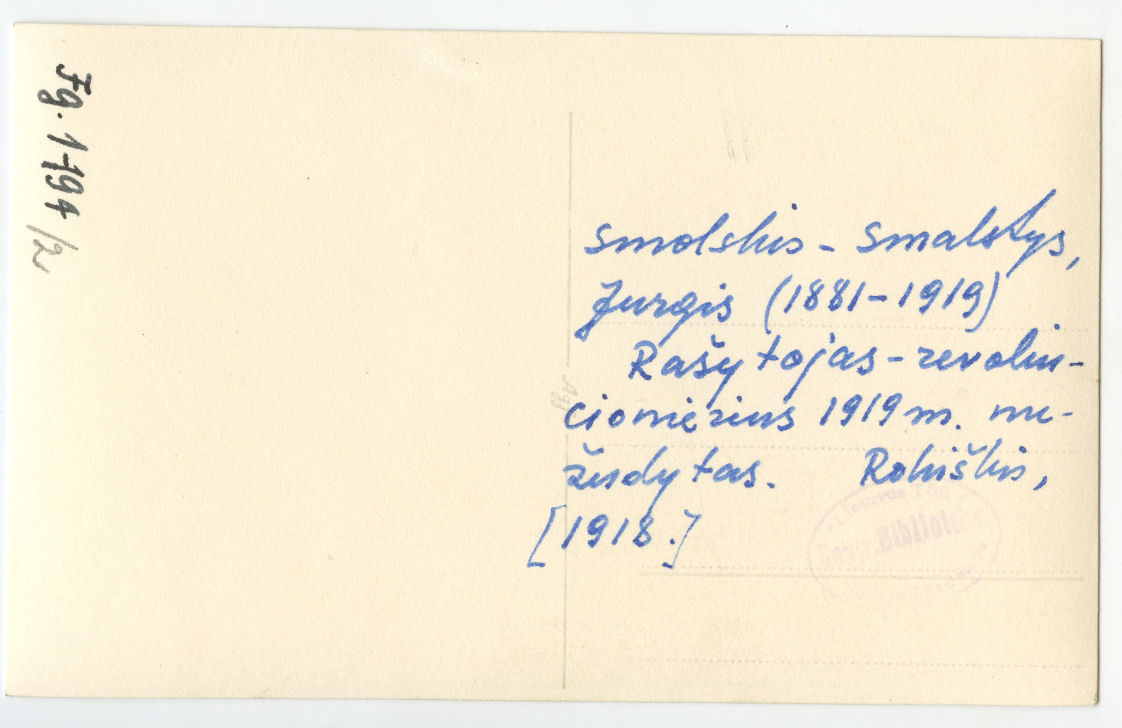 Fg. 1-194/2
Smolskis - Smalstys,
Jurgis (1881-1919)
Rašytojas-revoliu-
cionierius 1919 m. nu-
žudytas. Rokiškis,
[1918.]